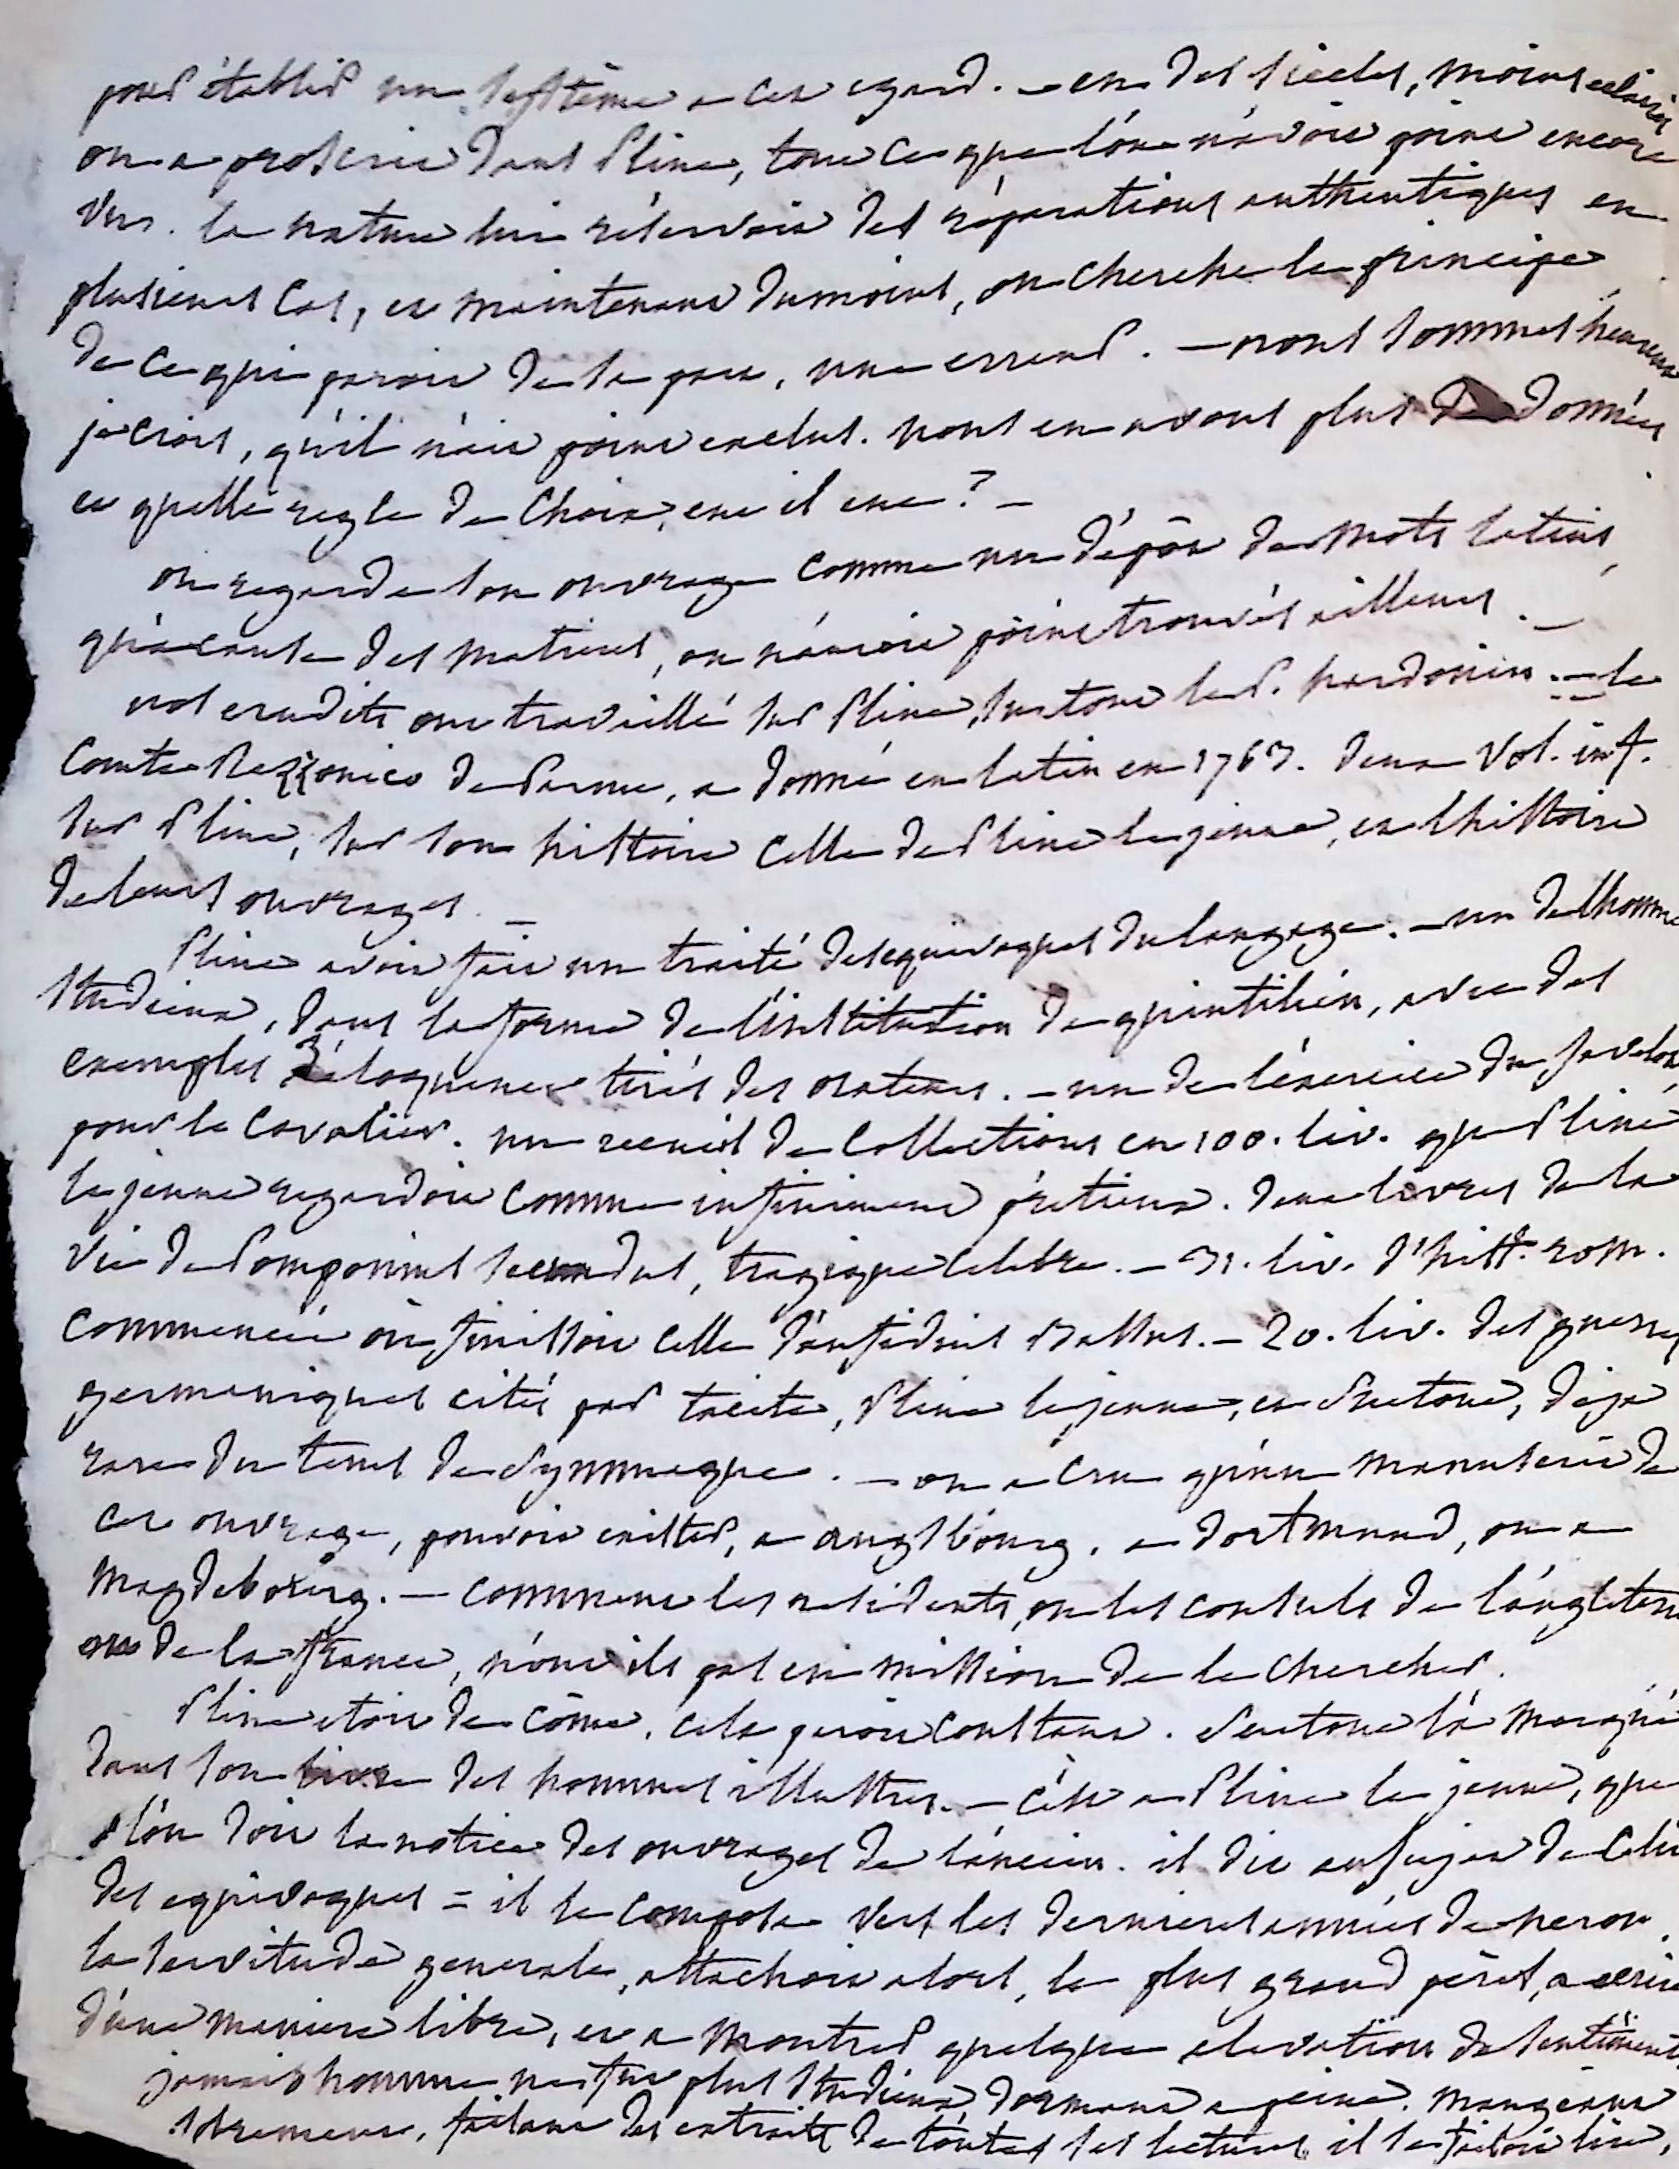 pour établir un systême a cet egard. - en des siècles, moins eclairés
on a proscrit dans Pline, tout ce que l'on n'avoit point encore
vu. la nature lui réservoit des réparations authentiques en
plusieurs cas, et maintenant du moins, on cherche le principe
de ce qui paroit de sa part, une erreur. - nous sommes heureux
je crois, qu'il n'ait point exclus. nous en avons plus de données
et quelle regle de choix, eut il eue ? -
on regarde son ouvrage comme un dépôt de mots latins,
qu'a cause des matieres, on n'auroit point trouvés ailleurs. -
nos erudits ont travaillé sur Pline, surtout le P. hardouin. - le
Comte Rezzonico de Parme, a donné en latin en 1763. deux vol. in f.
sur Pline, sur son histoire celle de Pline le jeune, et l'histoire
de leurs ouvrages. -
Pline avoit fait un traité des equivoques du langage. - un de l'homme
studieux, dans la forme de l'institution de quintilien, avec des
exemples d'éloquence tirés des orateurs. - un de l'éxercice du javelot,
pour le cavalier. un recueil de collections en 100. liv. que Pline
le jeune regardoit comme infiniment prétieux. deux livres de la
vie de Pomponius secundus, tragique celebre. - 31. liv. d'hist. rom.
commencée où finissoit celle d'aufidius Bassus. - 20. liv. des guerres
germaniques cités par tacite, Pline le jeune, et Suetone, déja
rare du tems de Symmaque. - on a cru qu'un manuscrit de
cet ouvrage, pouvoit exister, a augsbourg, a dortmund, ou a
Magdebourg. - comment les residents, ou les consuls de l'angleterre
ou de la france, n'ont ils pas eu mission de le chercher.
Pline etoit de côme, cela paroit constant. Suetone l'a marqué
dans son livre des hommes illustres. - c'est a Pline le jeune, que
l'on doit la notice des ouvrages de l'ancien. il dit au sujet de celui
des equivoques = il le composa vers les dernieres années de neron.
la servitude generale, attachoit alors, le plus grand péril, a ecrire
d'une maniere libre, et a montrer quelque elevation de sentiment
jamais homme ne fut plus studieux, dormant a peine, mangeant
sobrement, faisant des extraits de toutes ses lectures, il se faisoit lire,